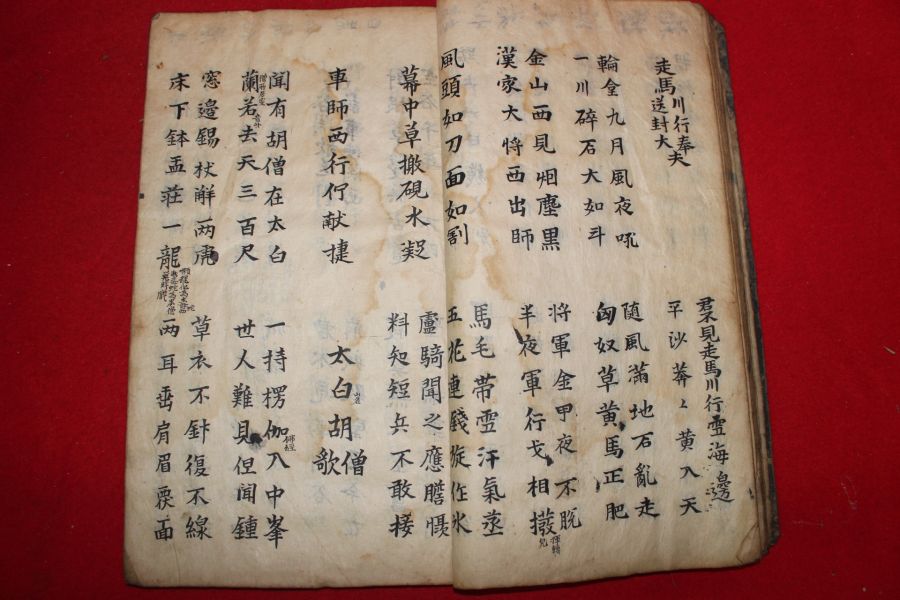 走馬川行奉
送封大夫
君不見走馬川行雪海邊
平沙莽々黃入天
輪金九月風夜吼
一川碎石大如斗
隨風滿地石亂走
匈奴草黃馬正肥
金山西見烟塵黑
漢家大將西出師
將軍金甲夜不脫
半夜軍行戈相撥
風頭如刀面如割
馬毛帶雪汗氣蒸
五花連錢旋作氷
幕中草撽硯水凝
盧騎聞之應膽慑
料知短兵不敢接
車師西行佇献捷
太白胡僧歌
聞有胡僧在太白
蘭若去天三百尺
一持楞伽入中峯
佛経
世人難見但聞鍾
窓邊錫杖解两虎
床下鉢盂荘一龍
草衣不針復不線
两耳垂肩眉覆面